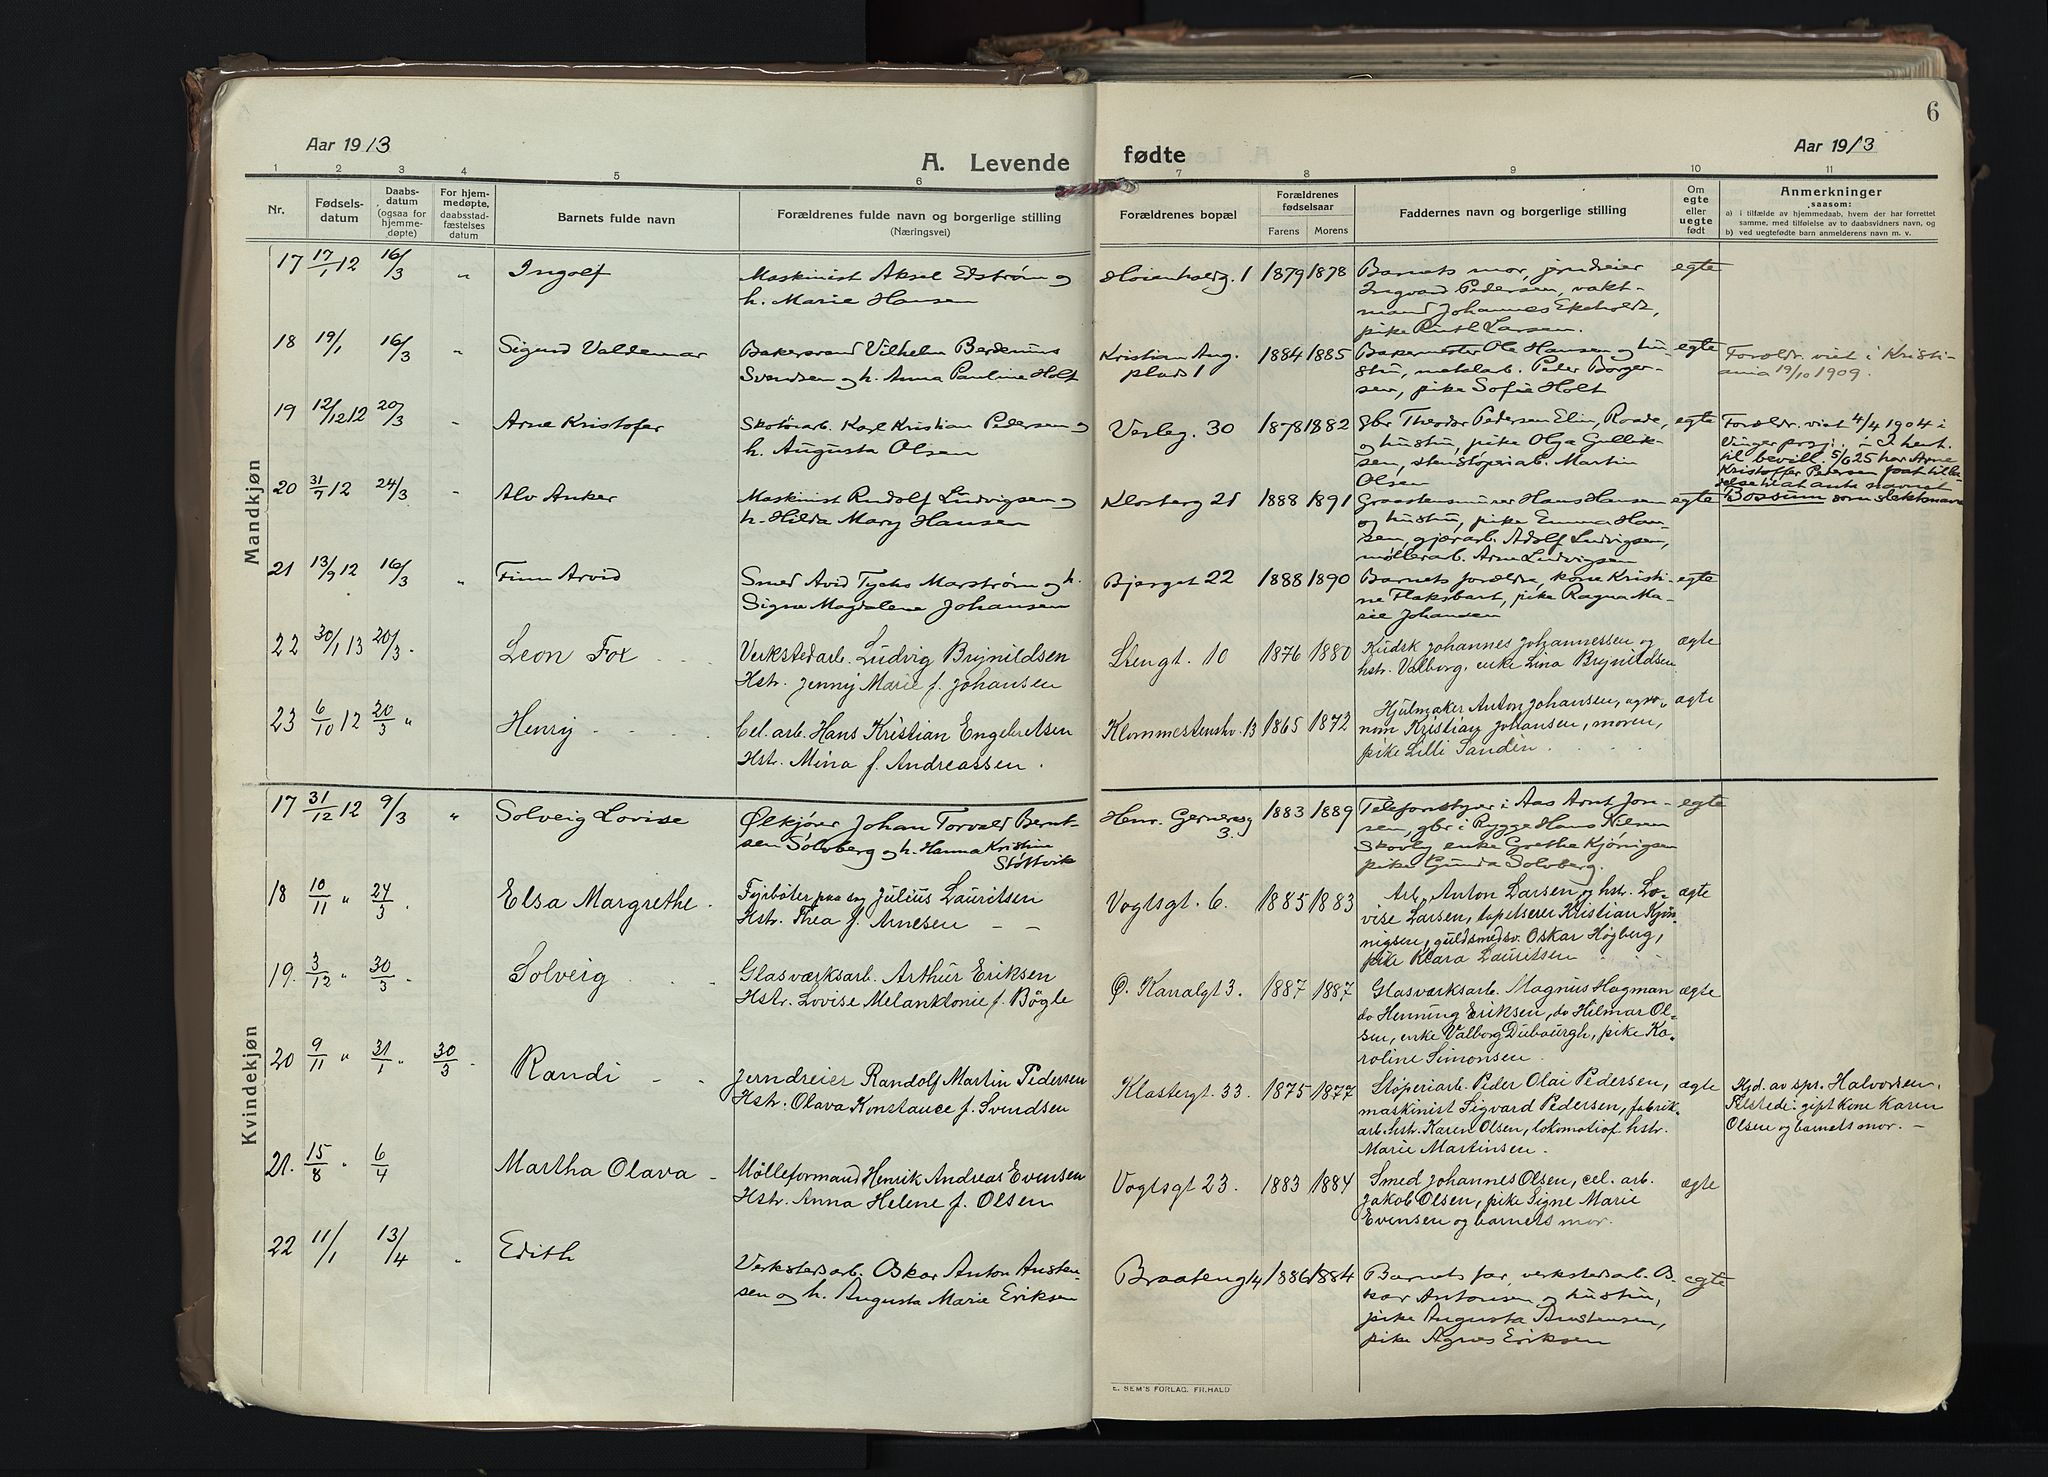 6
Aar 1913
A. Levende
fødte
Aar 1913
1 2 3 4 5 6 7 8 9 10 11
Nr.
Fødselsdatum
Daabsdatum (ogsaa for hjemmedøpte)
For hjemmedøpte, daabsstadfæstelses datum
Barnets fulde navn
Forældrenes fulde navn og borgerlige stilling
(Næringsvei)
Forældrenes bopæl
Forældrenes fødselsaar
Farens Morens
Faddernes navn og borgerlige stilling
Om egte eller uegte født
Anmerkninger
saasom:
a) i tilfælde av hjemmedaab, hvem der har forrettet
samme, med tilføielse av to daabsvidners navn, og
b) ved uegtefødte barn anmelderens navn m. v.
Mandkjøn
17 17/1 12 16/3 " Ingolf
Maskinist Aksel Edstrøm og
h. Marie Hansen
1 1879 1878
Barnets mor, jerndreier
Ingvard Pedersen, vakt-
mand Johannes Ekeholdt,
pike Ruth Larsen.
egte
18 19/1 16/3 " Sigurd Valdemar
Bakersvend Vilhelm
Svendsen og h. Anna Pauline Holt
Kristian Aug.
plads 1
1884 1885
Bakermester Ole Hansen og hu-
stru, metalarb. Peder Borger-
sen, pike Sofie Holt
egte
Forældr. viet i Kristi-
ania 19/10 1909.
19 12/12 12 20/3 " Arne Kristofer
Skotøiarb. Karl Kristian Pedersen og
h. Augusta Olsen
Verleg. 30
1878 1882
gbr Theodor Pedersen Elin, Raade,
og hustru, pike Olga Gullik-
sen, stenstøperiarb. Martin
Olsen
egte
Forældr. viet 4/4 1904 i
Vinger prgj. - I hent.
til bevill. 5/6 25 har Arne
Kristoffer Petersen faat tilla-
delse til at anta navnet
Bossum som slektsnavn
20 31/7 12 24/3 " Alv Anker
Maskinist Rudolf Ludvigsen og
h. Hilda Mary Hansen
Klosterg 21
1888 1891
Graastensmurer Hans Hansen
og hustru, pike Emma Han-
sen, gjærarb. Adolf Ludvigsen,
møllerarb. Arne Ludvigsen
egte
21 13/9 12 16/3 " Finn Arvid
Smed Avid Tycho Marstrøm og h.
Signe Magdalene Johansen
Bjerget 22
1888 1890
Barnets forældre, kone Kristi-
ne Flaksbart, pike Ragna Ma-
rie Johansen
egte
22 30/1 13 20/3 . Leon Fox
Verkstedarb. Ludvig Brynildsen
Hstr. Jenny Marie f. Johansen
Stengt. 10
1876 1880
Kudsk Johannes Johannessen og
hstr. Valborg, enke Lina Brynildsen
ægte
23 6/10 12 20/3 " Henry
Cel. arb. Hans Kristian Engebretsen
Hstr. Mina f. Andreassen.
Klommestenshv. 13
1865 1872
Hjulmaker Anton Johansen, agro-
nom Kristian Johansen, moren,
pike Lilli Sandén.
ægte
Kvindekjøn
17 31/12 12 9/3 " Solveig Lovise
Ølkjører Johan Torvald Bernt-
sen Solvberg og h. Hanna Kristine
Støttvik
Henr. Gerners g
3.
1883 1889
Telefonstyrer i Aas Arnt Jon-
sen, gbr i Rygge Hans Nilsen
Skovly enke Grethe Kjönigsen
pike Gunda Solvberg.
egte
18 10/11 " 24/3 . Elsa Margrethe.
Fyrbøter paa sag Julius Lauritsen
Hstr. Thea f. Arnesen
Vogtsgt. 6.
1885 1883
Arb. Anton Larsen og hstr. Lo-
vise Larsen, tapetserer Kristian Kjøn-
nigsen, guldsmedsv. Oskar Høgberg,
pike Klara Lauritsen
ægte
19. 3/12 " 30/3 . Solveig
Glasværksarb. Arthur Eriksen
Hstr. Lovise Melanktonie f. Bøgle
Ø. Kanalgt 3.
1887 1887
Glasværksarb. Magnus Hagman
do Henning Eriksen, do Hilmar Ol-
sen, enke Valborg Dubourgh, pike Ka-
roline Simonsen.
ægte
20 9/11 " 31/1 " 30/3 . Randi
Jerndreier Randolf Martin Pedersen
Hstr. Olava Konstance f. Svendsen
Klostergt. 33.
1875 1877
Støperiarb. Peder Olai Pedersen,
maskinist Sigvard Pedersen, fabrik-
arb. hstr. Karen Olsen, lokomotivf. hstr.
Marie Martinsen.
ægte
Hjd. av spr. Halvorsen.
Tilstede: gift kone Karen
Olsen og barnets mor. -
21. 15/8 " 6/4 Martha Olava
Mølleformand Henrik Andreas Evensen
Hstr. Anna Helene f. Olsen
Vogtsgt 23.
1883 1884
Smed Johannes Olsen, cel. arb.
Jakob Olsen, pike Signe Marie
Evensen og barnets mor.
ægte
22 11/1 13/4 " Edith
Verkstedsarb. Oskar Anton Austen-
sen og h. Augusta Marie Eriksen
Braateng 14
1886 1884
Barnets far, verkstedsarb. Os-
kar Antonsen og hustru,
pike Augusta Anstensen,
pike Agnes Eriksen
egte
E. SEM'S FORLAG. FR.HALD